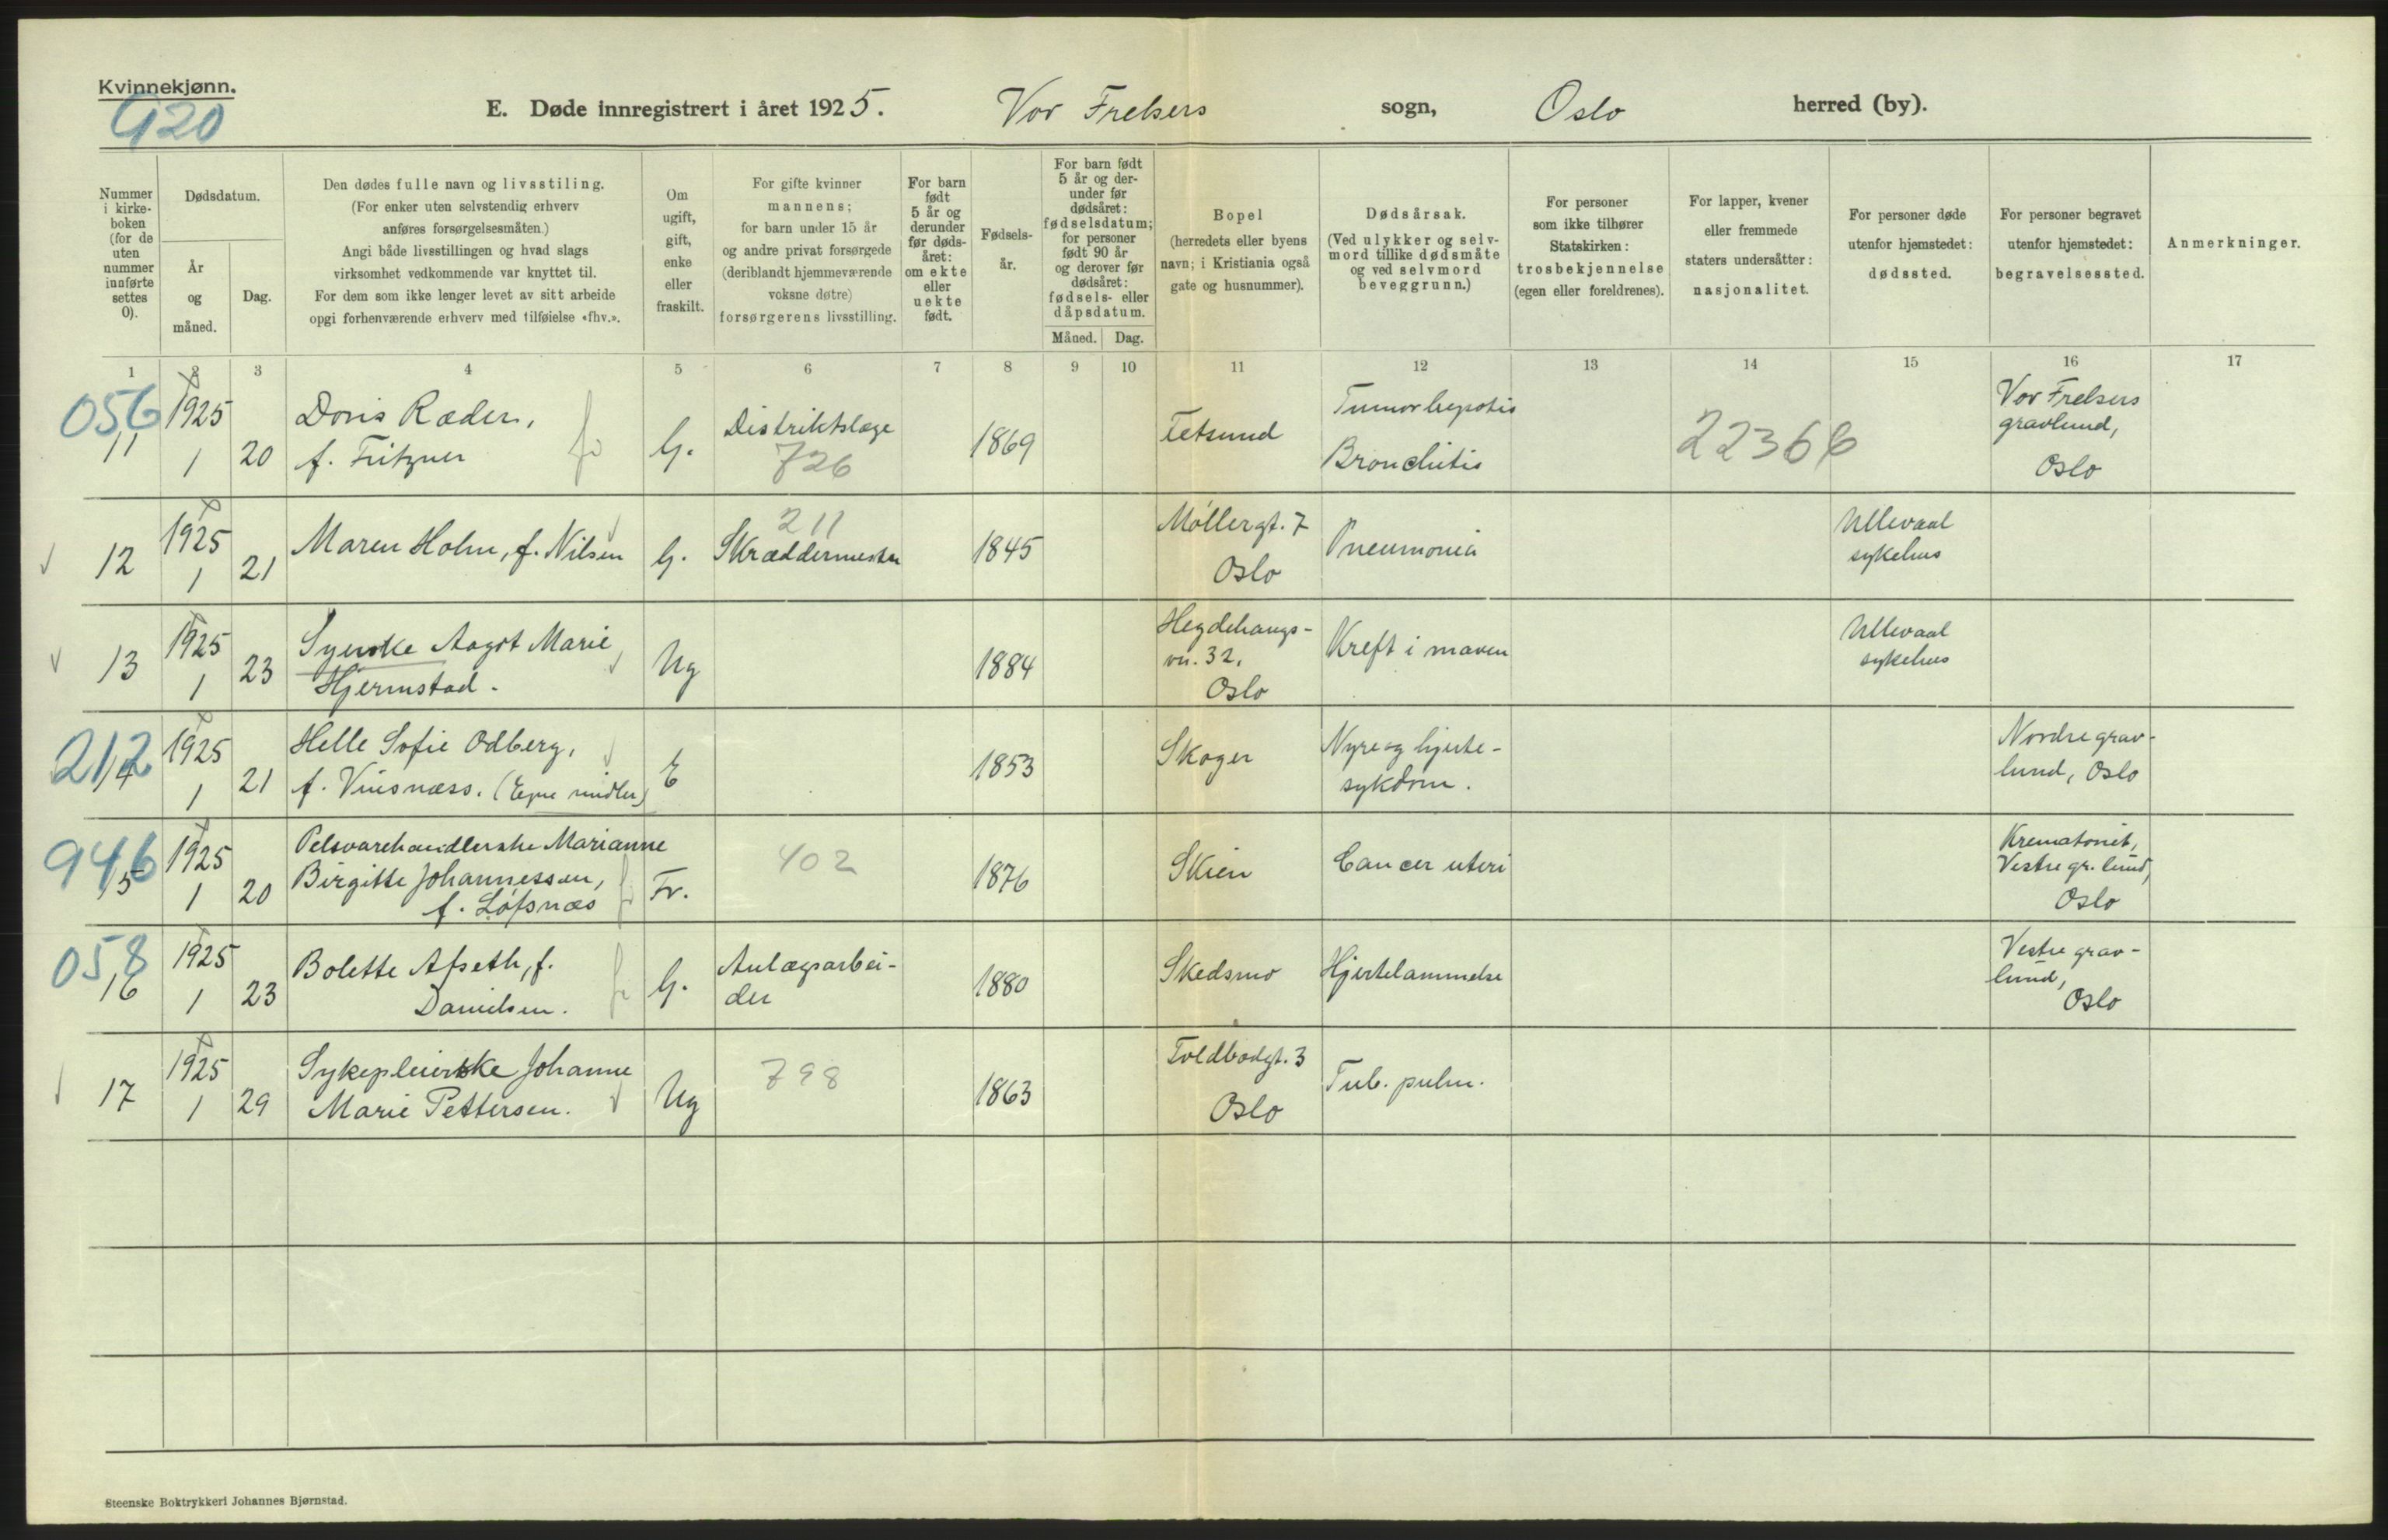 Kvinnekjønn.
920
E. Døde innregistrert i året 1925. Vor Frelsers sogn, Oslo herred (by).
Nummer i kirkeboken (for de uten nummer innførte settes 0).
Dødsdatum.
År og måned.
Dag.
Den dødes fulle navn og livsstiling.
(For enker uten selvstendig erhverv
anføres forsørgelsesmåten.)
Angi både livsstillingen og hvad slags
virksomhet vedkommende var knyttet til.
For dem som ikke lenger levet av sitt arbeide
opgi forhenværende erhverv med tilføielse «fhv.».
Om
ugift,
gift,
enke
eller
fraskilt.
For gifte kvinner
mannens;
for barn under 15 år
og andre privat forsørgede
(deriblandt hjemmeværende
voksne døtre)
forsørgerens livsstilling.
For barn
født
5 år og
derunder
før døds-
året:
om ekte
eller
uekte
født.
Fødsels-
år.
For barn født
5 år og der-
under før
dødsåret:
fødselsdatum;
for personer
født 90 år
og derover før
dødsåret:
fødsels- eller
dåpsdatum.
Måned. Dag.
Bopel
(herredets eller byens
navn; i Kristiania også
gate og husnummer).
Dødsårsak.
(Ved ulykker og selv-
mord tillike dødsmåte
og ved selvmord
beveggrunn.)
For personer
som ikke tilhører
Statskirken:
trosbekjennelse
(egen eller foreldrenes).
For lapper, kvener
eller fremmede
staters undersåtter:
nasjonalitet.
For personer døde
utenfor hjemstedet:
dødssted.
For personer begravet
utenfor hjemstedet:
begravelsessted.
Anmerkninger.
1 2 3 4 5 6 7 8 9 10 11 12 13 14 15 16 17
056
11 1925 1 20
Doris Ræder,
f. Fritzner
G.
Distriktslæge
726
1869
Fetsund
Tumor hepatis
Bronchitis
22366
Vor Frelsers
gravlund,
Oslo
12 1925 1 21
Maren Holm, f. Nilsen
G.
211
Skræddermester
1845
Møllergt. 7
Oslo
Pneumonia
Ullevaal
sykehus
13 1925 1 23
Syerske Aagot Marie
Hjermstad.
Ug
1884
Hegdehaugs-
vn. 32,
Oslo
Kreft i maven
Ullevaal
sykehus
212
14 1925 1 21
Helle Sofie Odberg,
f. Vinsnæss. (Egne midler)
E
1853
Skoger
Nyre og hjerte-
sykdom.
Nordre grav-
lund, Oslo
946
15 1925 1 20
Pelsvarehandlerske Marianne
Birgitte Johannessen,
f. Løfsnæs
Fr.
402
1876
Skien
Cancer uteri
Krematoriet,
Vestre gr. lund,
Oslo
058
16 1925 1 23
Bolette Afseth, f.
Danielsen.
G.
Anlægsarbei-
der
1880
Skedsmo
Hjertelammelse
Vestre grav-
lund,
Oslo
17 1925 1 29
Sykepleierske Johanne
Marie Pettersen.
Ug
798
1863
Toldbodgt. 3
Oslo
Tub. pulm.
Steenske Boktrykkeri Johannes Bjørnstad.